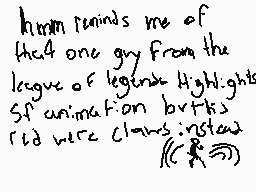 hmm reminds me of
that one guy from the
league of legends Highlights
Sf animation but his
red were claws instead